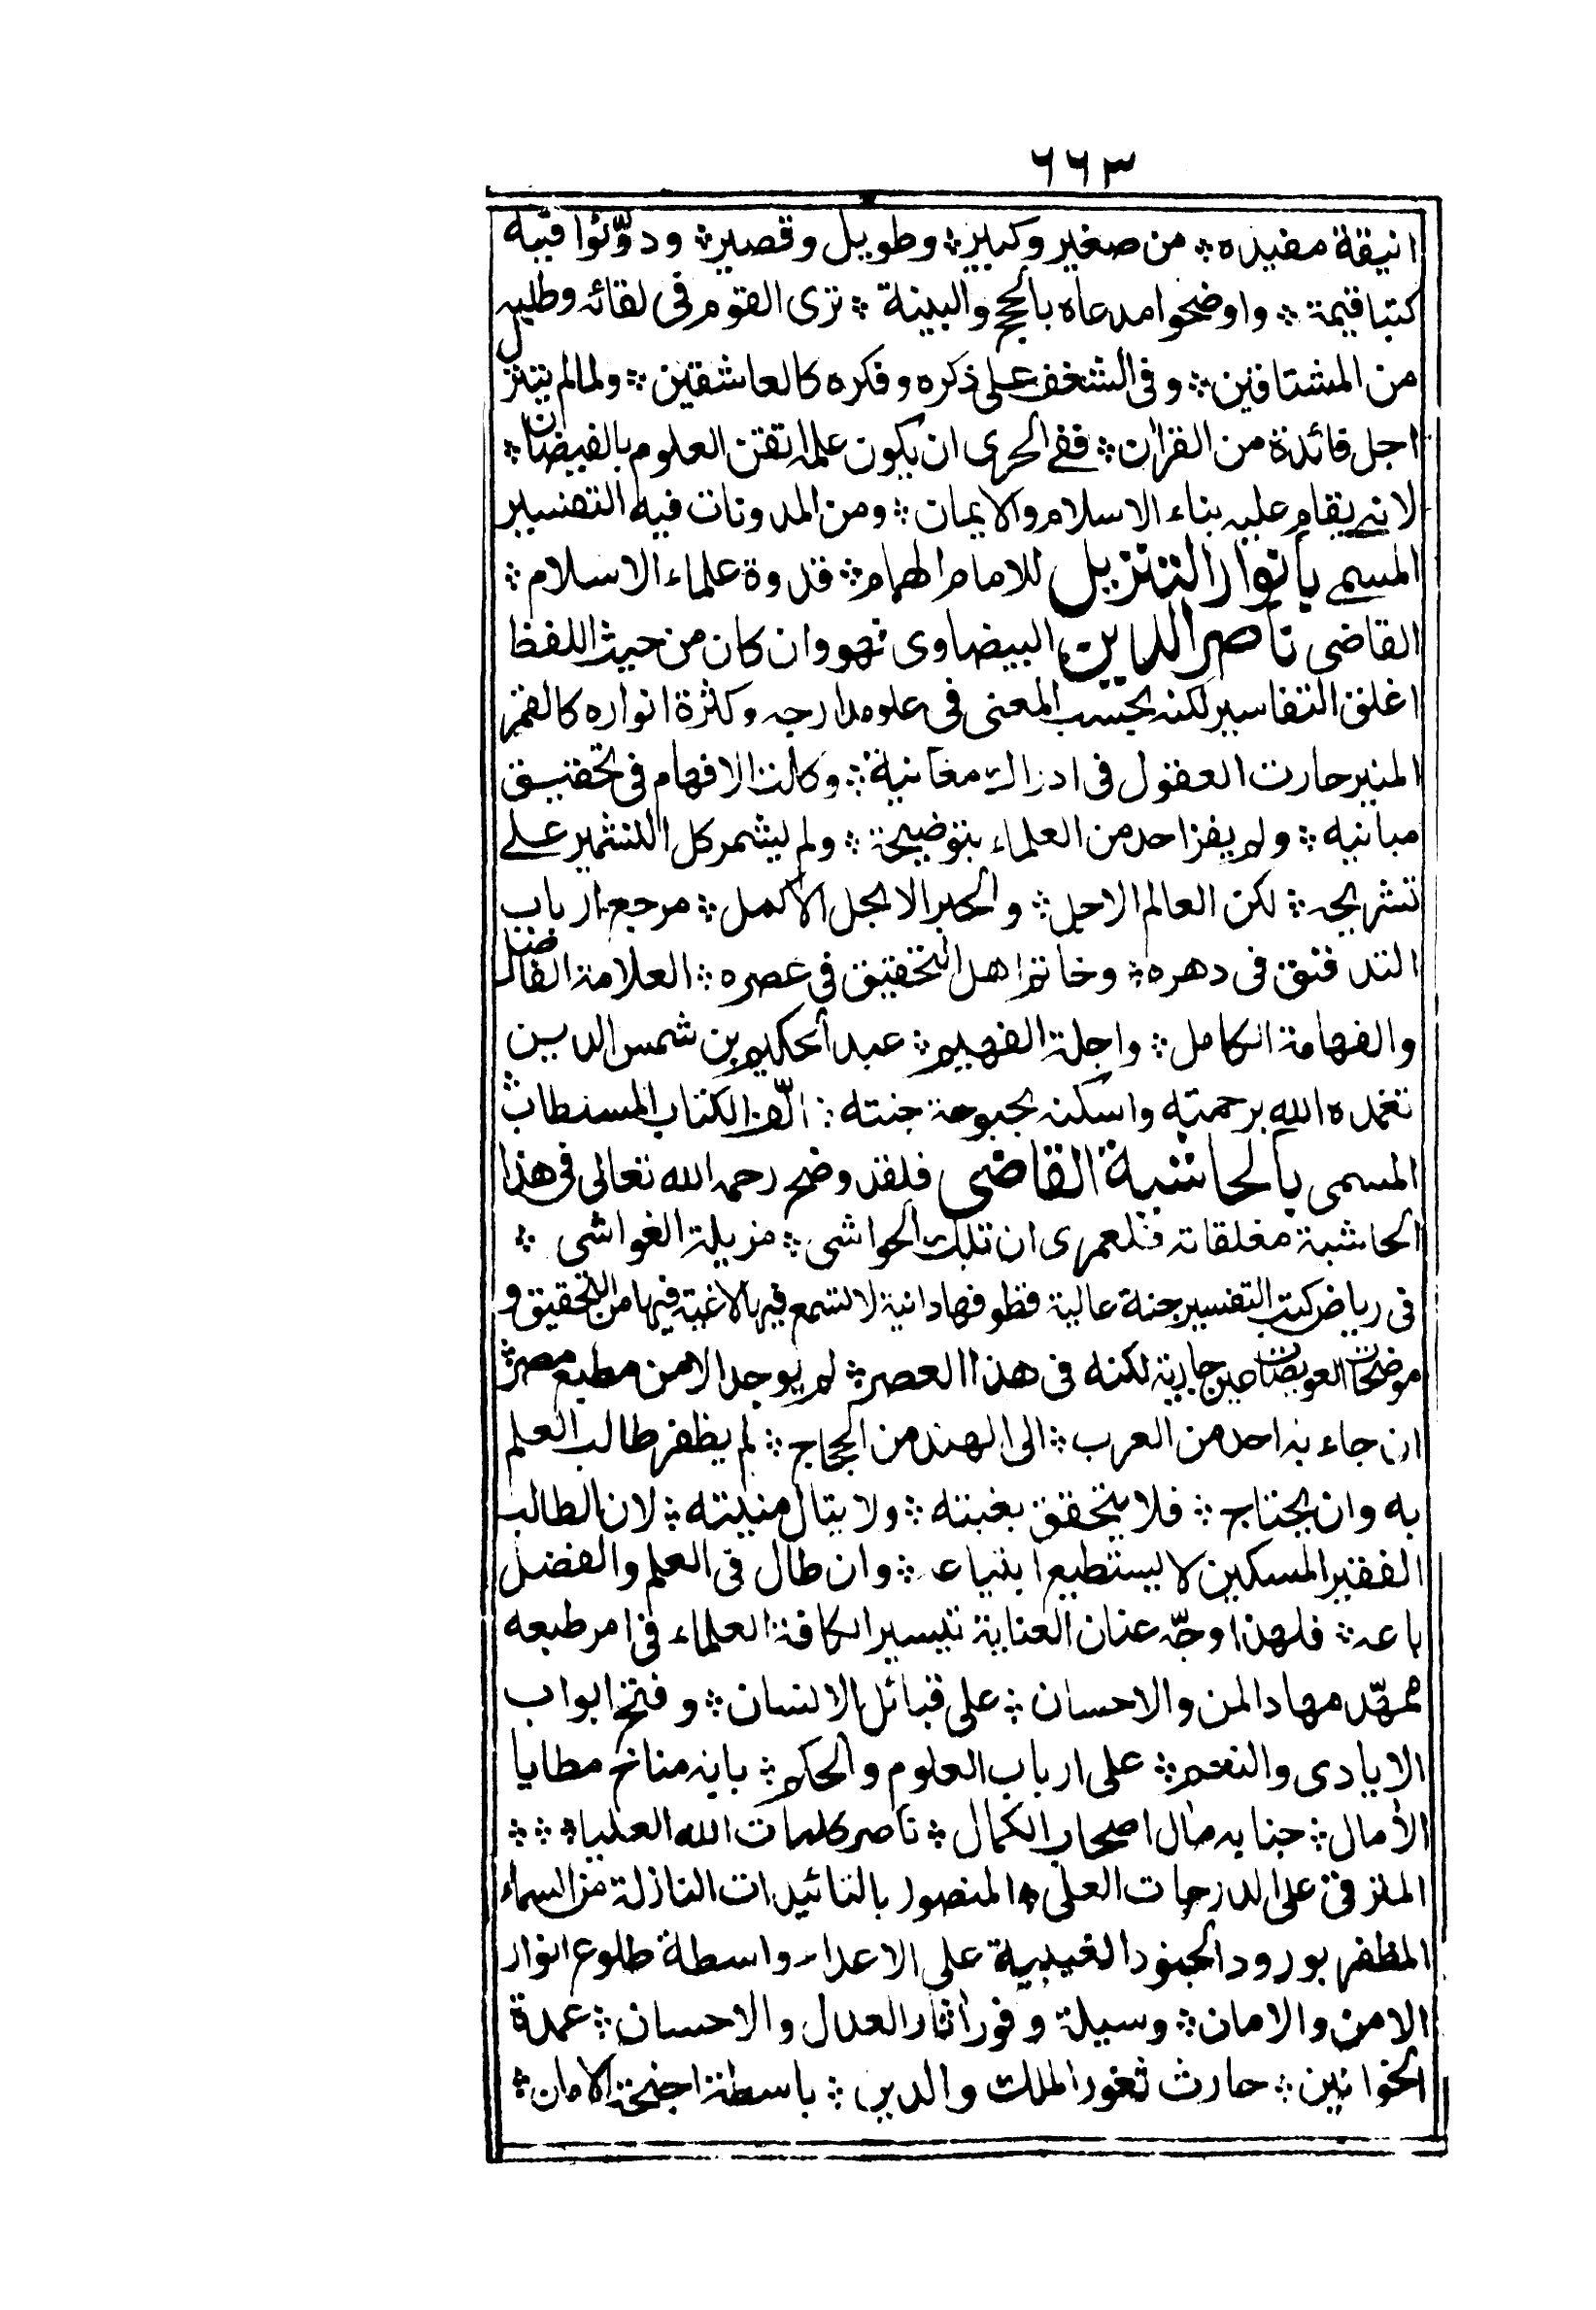 ٦٦٣
انيقة مفيده ؞ من صغير وكبير ؞ وطويل وقصير ؞ ودوّنوا فيه
كتبا قيمة ؞ واوضحوا مدعاه بالحجج والبينة ؞ ترى القوم فى لقائه وطلبه
من المشتاقين ؞ وفى الشغف على ذكره وفكره كالعاشقين ؞ ولما لم يتنزل
اجل فائدة من القرآن ؞ ففى الحرى ان يكون علمه اتقن العلوم بالفيضان ؞
لانه يقام عليه بناء الاسلام والايمان ؞ ومن المدونات فيه التفسير
المسمى بانوار التنزيل للامام الهمام ؞ قدوة علماء الاسلام ؞
القاضى ناصر الدين البيضاوى فهو وان كان من حيث اللفظ
اغلق التفاسير لكنه بحسب المعنى فى علو مدارجه وكثرة انواره كالقمر
المنير حارت العقول فى ادراك معانيه ؞ وكالت الافهام فى تحقيق
مبانيه ؞ ولم يفز احد من العلماء بتوضيحه ؞ ولم يشمر كل التشمير على
تشريحه ؞ لكن العالم الاجل ؞ والحبر الابجل الاكمل ؞ مرجع ارباب
التدقيق فى دهره ؞ وخاتم اهل التحقيق فى عصره ؞ العلامة الفاضل
والفهامة الكامل ؞ واجلة الفهيم ؞ عبد الحكيم بن شمس الدين
تغمده الله برحمته واسكنه بحبوحة جنته ؞ الّف الكتاب المستطاب ؞
المسمى بالحاشية القاضى فلقد وضح رحمه الله تعالى فى هذا
الحاشية مغلقاته فلعمرى ان تلك الحواشى ؞ مزيلة الغواشى ؞
فى رياض كتب التفسير جنة عالية قطوفها دانية لا تسمع فيها لاغية فيها من التحقيق و
موضحات العويصات عين جارية لكنه فى هذا العصر ؞ لم يوجد الا من مطبع مصر ؞
ان جاء به احد من العرب ؞ الى الهند من الحجاج ؞ لم يظفر طالب العلم
به وان يحتاج ؞ فلا يتحقق بغيته ؞ ولا ينال منيته ؞ لان الطالب
الفقير المسكين لا يستطيع ابتياعه ؞ وان طال فى العلم والفضل
باعه ؞ فلهذا وجّه عنان العناية تيسيرا لكافة العلماء فى امر طبعه
ممهّد مهاد المن والاحسان ؞ على قبائل الانسان ؞ وفتح ابواب
الايادى والنعم ؞ على ارباب العلوم والحكم ؞ بابه مناخ مطايا
الآمال ؞ جنابه مآل اصحاب الكمال ؞ ناصر كلمات الله العليا ؞ ؞ ؞
المترقى على الدرجات العلى ؞ المنصور بالتائيدات النازلة من السماء
المظفر بورود الجنود الغيبية على الاعداء واسطة طلوع انوار
الامن والامان ؞ وسيلة وفور آثار العدل والاحسان ؞ عمدة
الخوانين ؞ حارث ثغور الملك والدين ؞ باسطة اجنحة الامان ؞